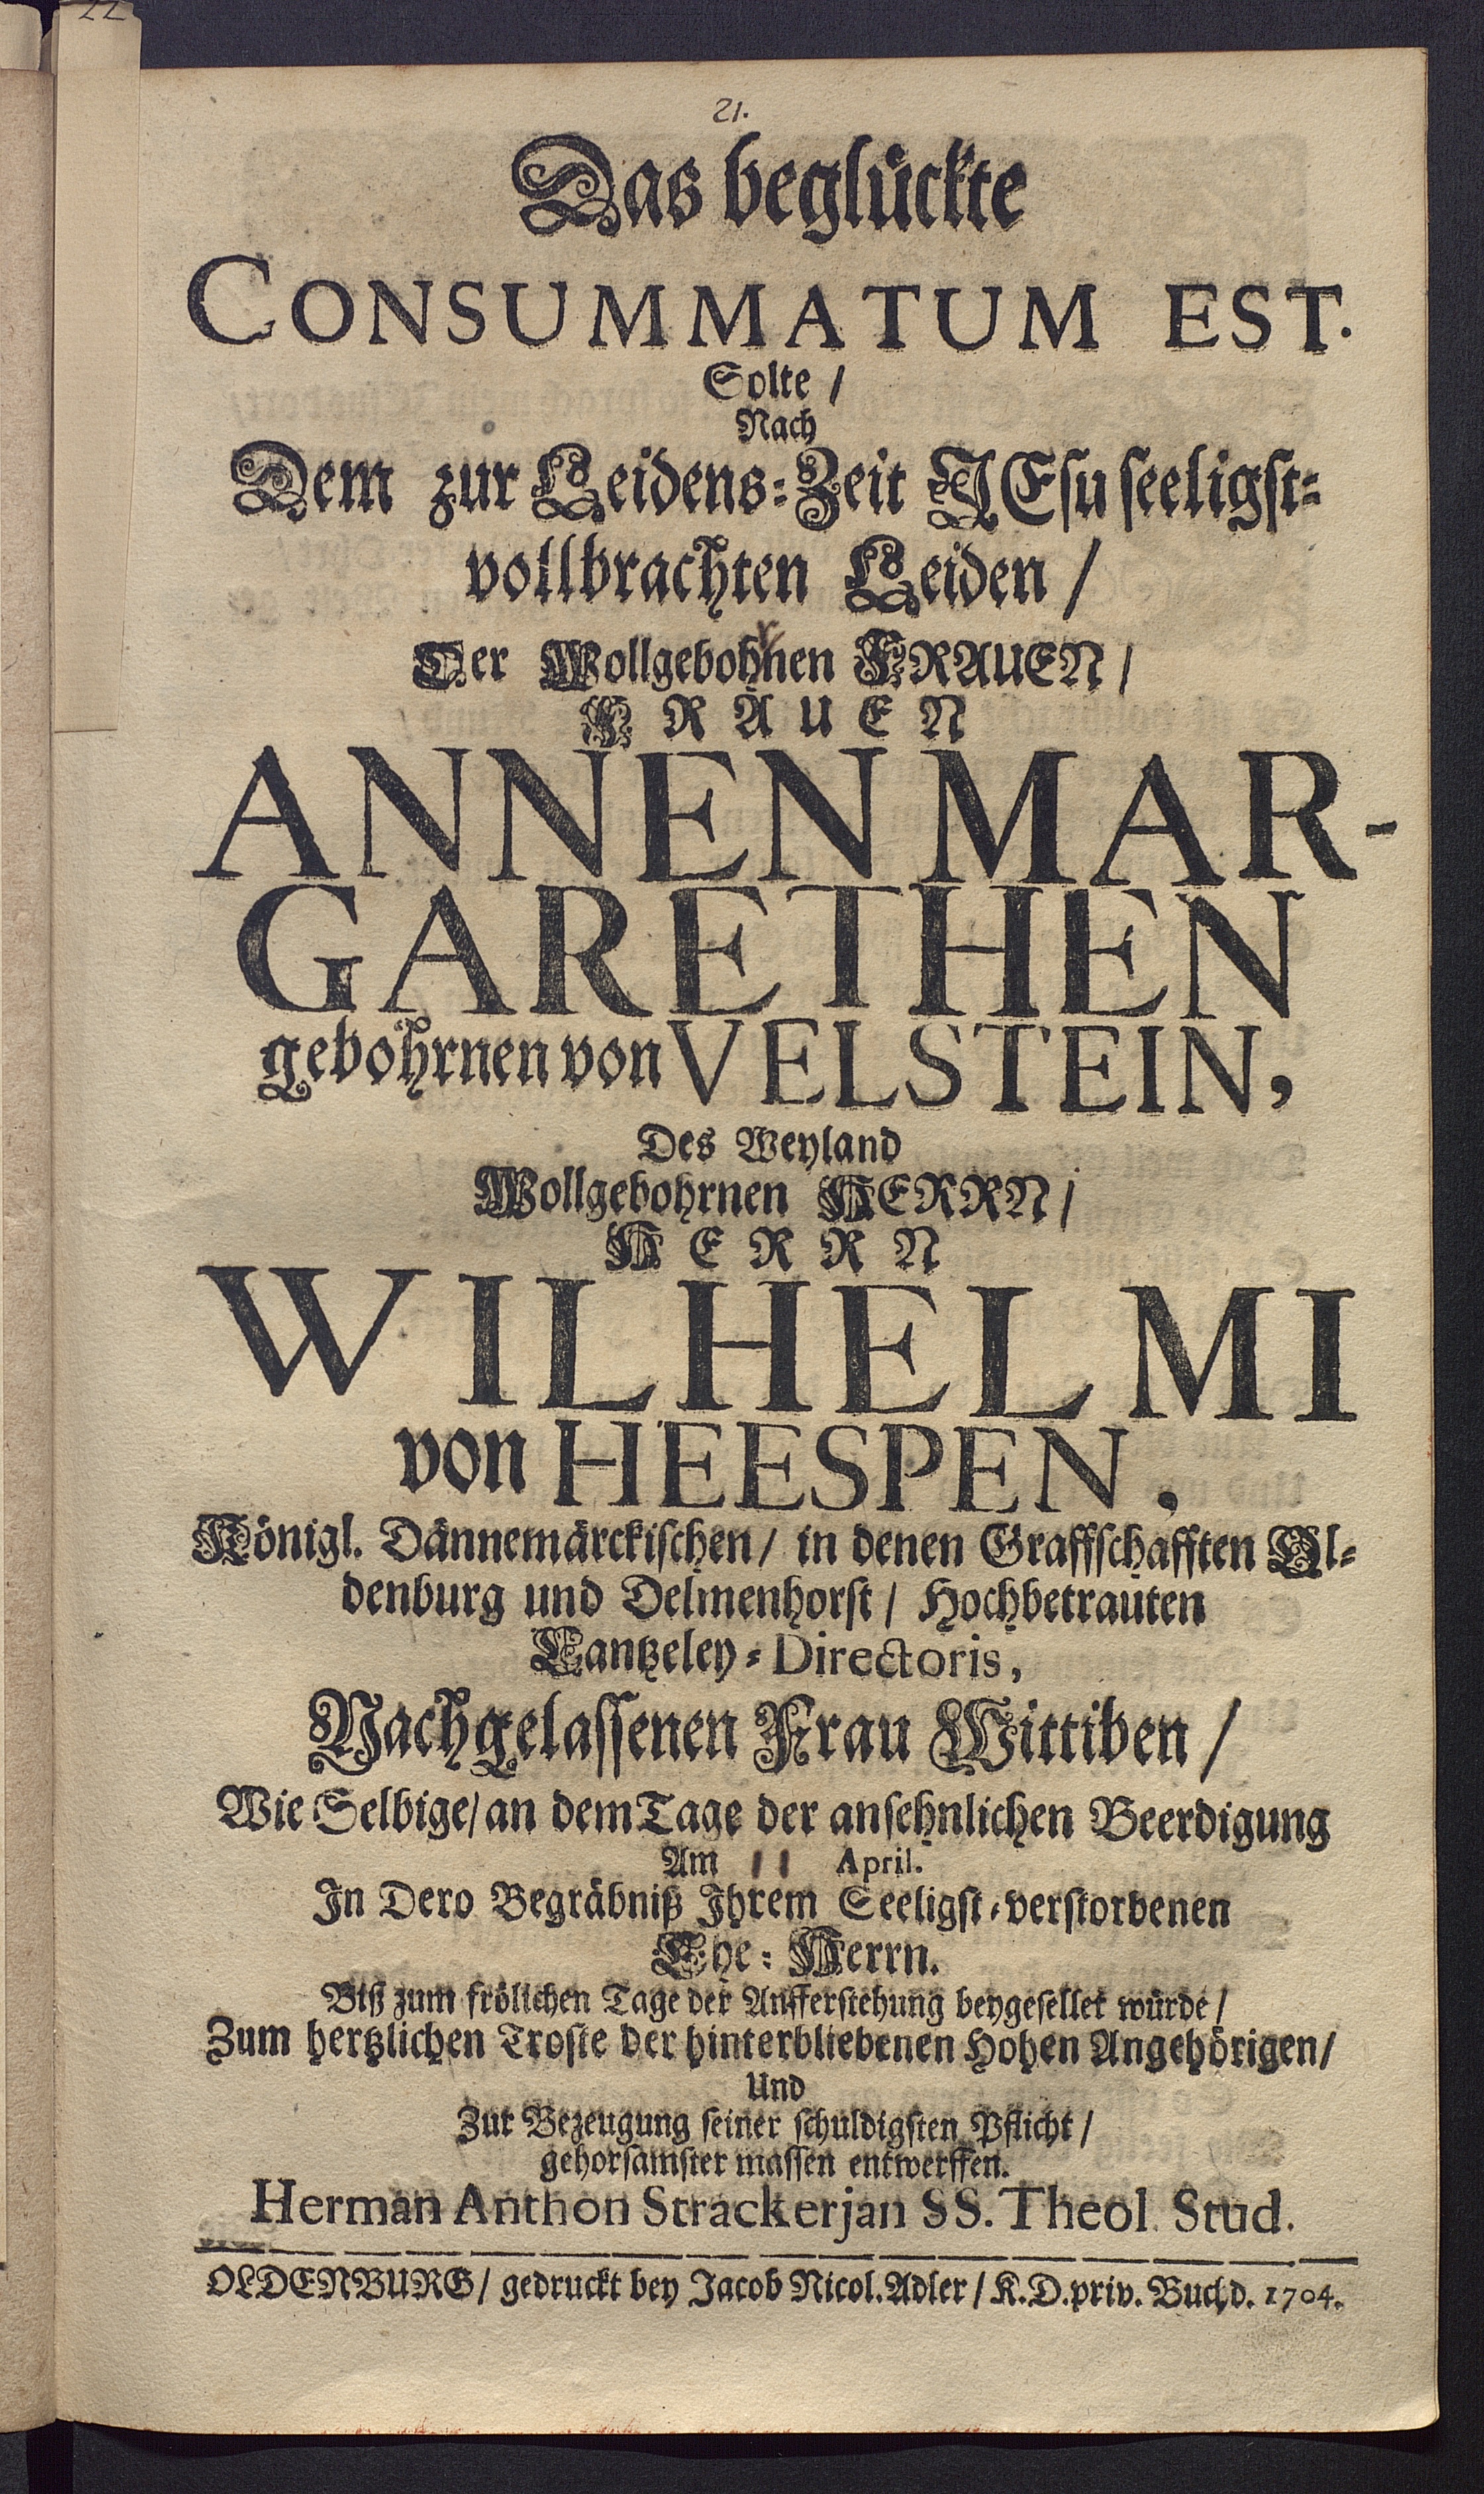 22
21.
Das beglückte
CONSUMMATUM EST.
Solte /
Nach
Dem zur Leidens-Zeit JEsu seeligst-
vollbrachten Leiden /
Der Wollgebohrnen FRAUEN /
FRAUEN
ANNEN MAR-
GARETHEN
gebohrnen von VELSTEIN,
Des Weyland
Wollgebohrnen HERRN /
HERRN
WILHELMI
von HEESPEN,
Königl. Dännemärckischen / in denen Graffschafften Ol-
denburg und Delmenhorst / Hochbetrauten
Cantzeley-Directoris,
Nachgelassenen Frau Wittiben /
Wie Selbige / an dem Tage der ansehnlichen Beerdigung
Am 11 April.
In Dero Begräbniß Ihrem Seeligst-verstorbenen
Ehe-Herrn.
Biß zum frölichen Tage der Aufferstehung beygesellet würde /
Zum hertzlichen Troste der hinterbliebenen Hohen Angehörigen /
Und
Zur Bezeugung seiner schuldigsten Pflicht /
gehorsamster massen entwerffen.
Herman Anthon Strackerjan SS. Theol. Stud.
OLDENBURG / gedruckt bey Jacob Nicol. Adler / K. D. priv. Buchd. 1704.